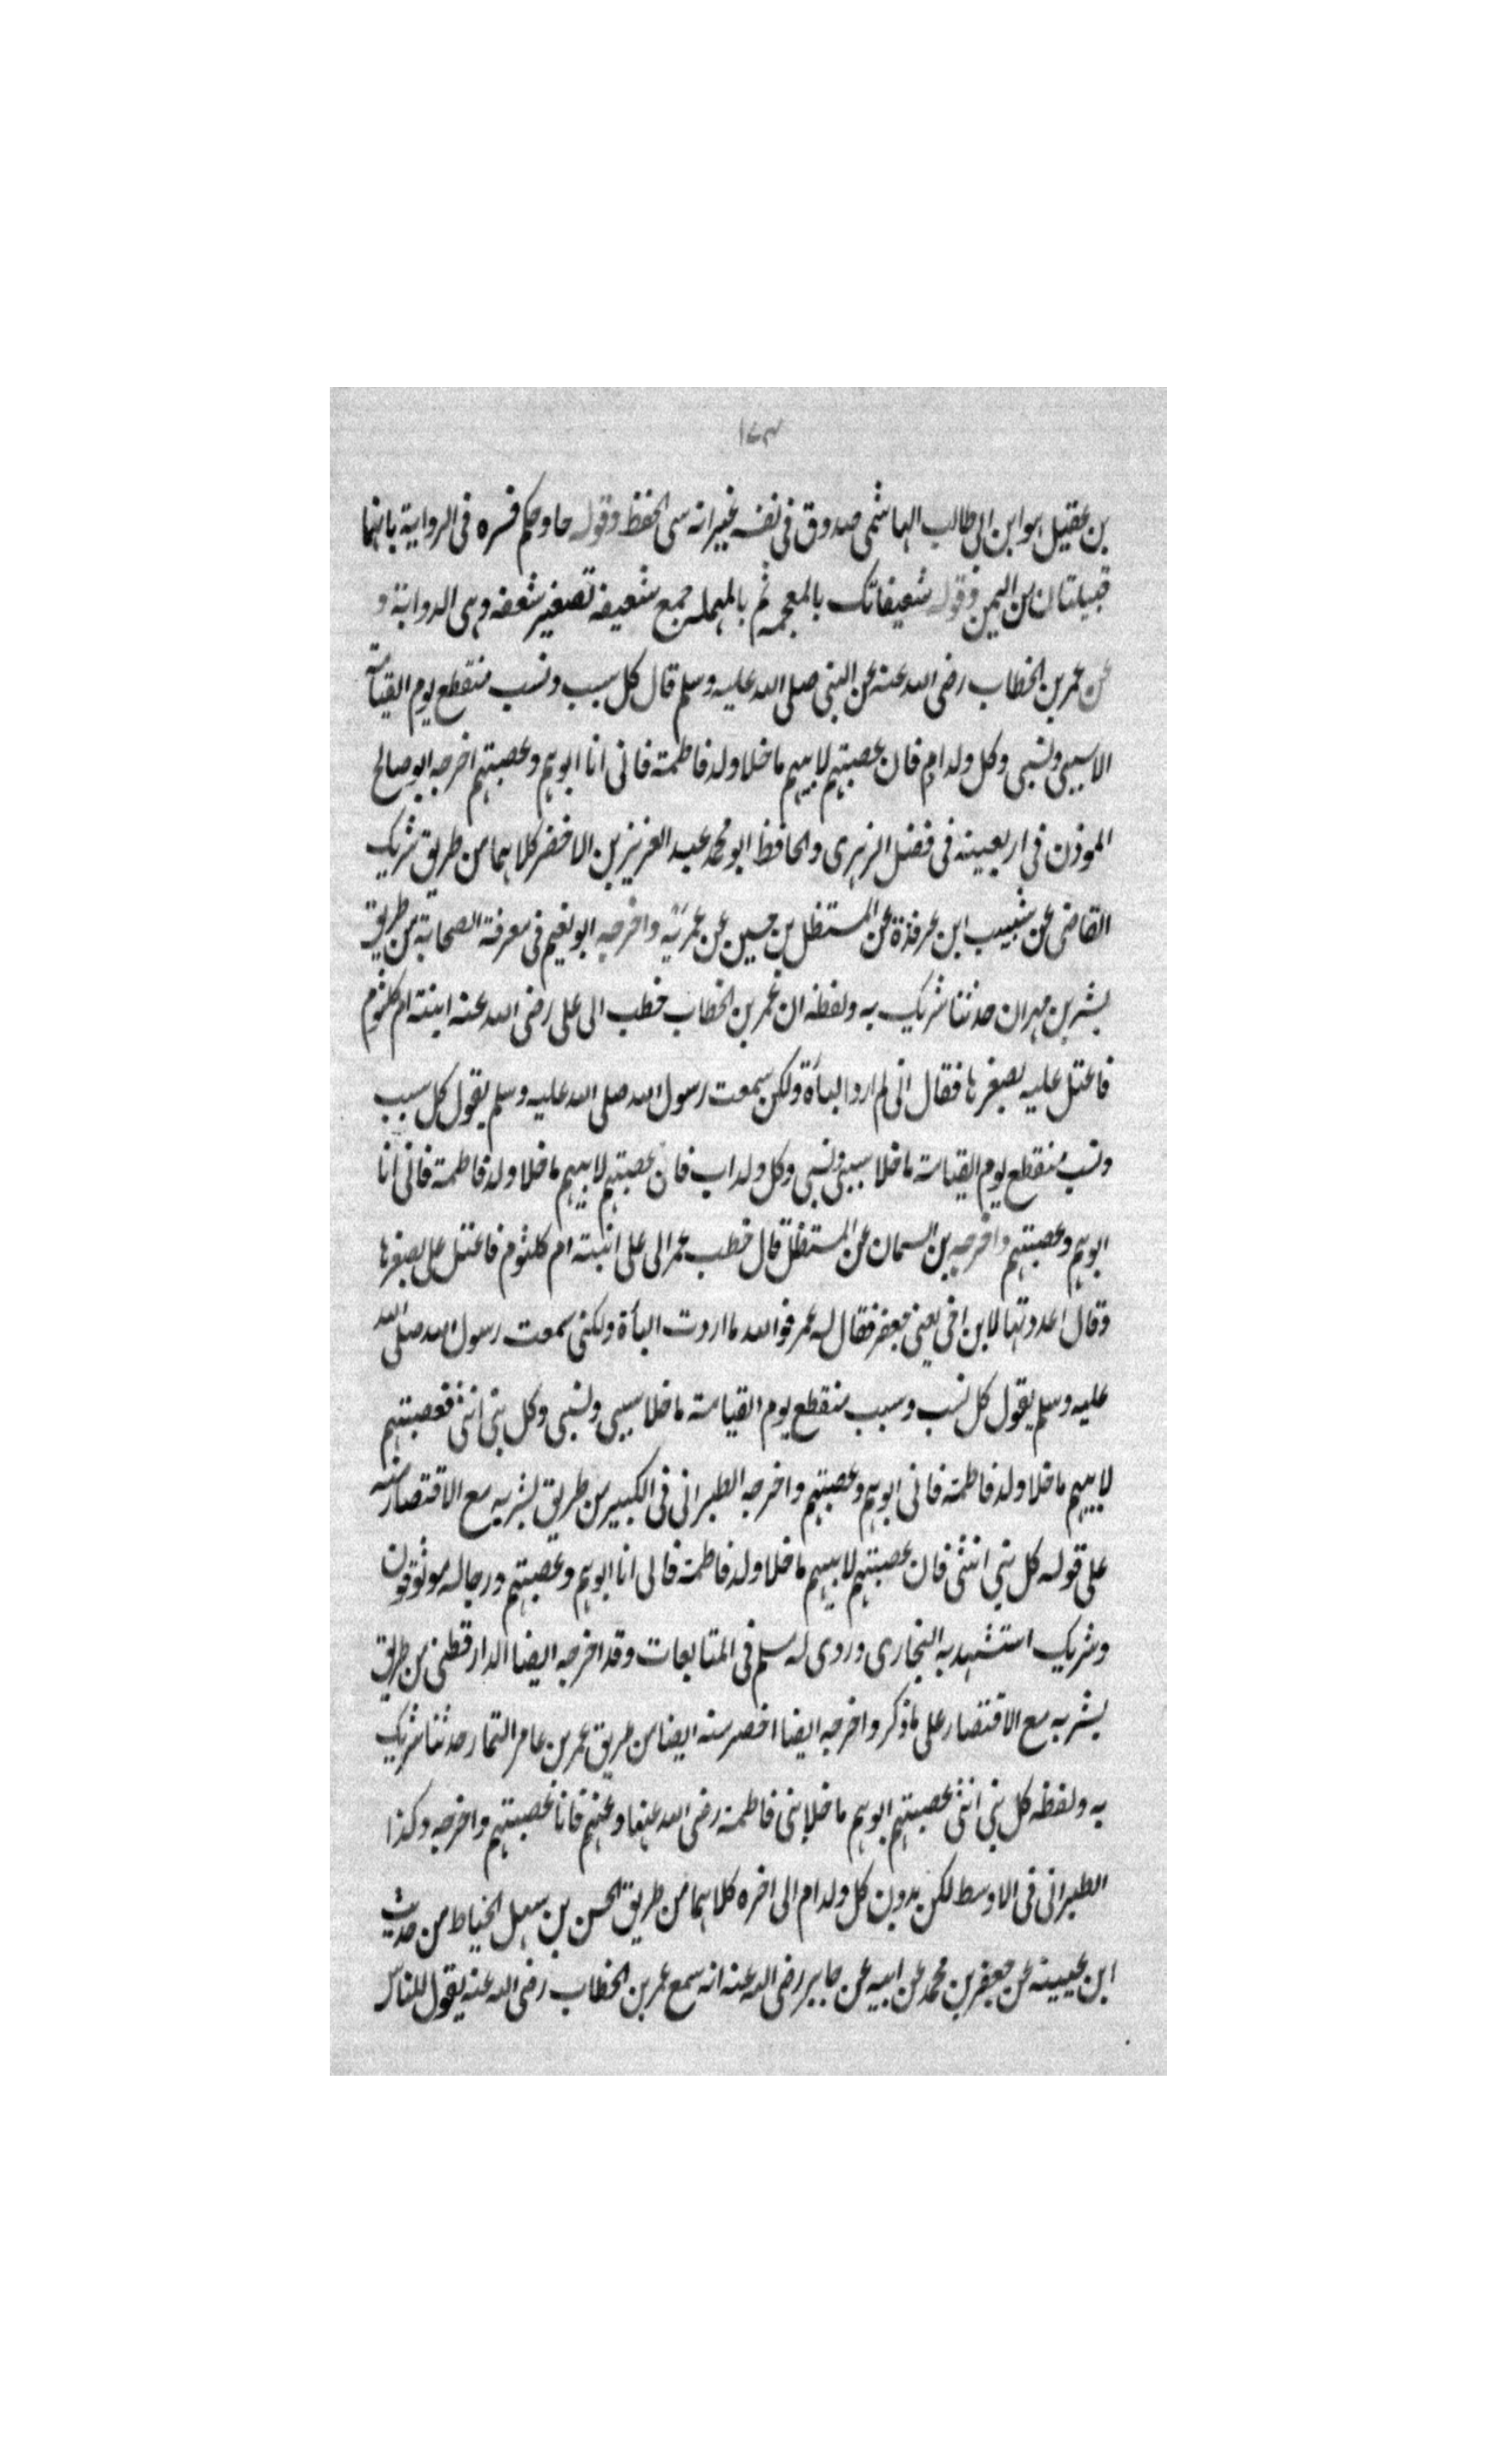 ١٤٣
بن عقيل هو ابن ابى طالب الهاشمى صدوق فى نفسه غير انه سى الحفظ وقوله حا وحكم فسره فى الرواية بانهما
قبيلتان من اليمن وقوله شعيفاتك بالمعجمه ثم بالمهمله جمع شعيفه تصغير شعفه وهى الذوابة و
عن عمر بن الخطاب رضى الله عنه عن النبى صلى الله عليه وسلم قال كل سبب ونسب منقطع يوم القيامة
الا سببى ونسبى وكل ولد ام فان عصبتهم لابيهم ما خلا ولد فاطمة فانى انا ابوهم وعصبتهم اخرجه ابو صالح
الموذن فى اربعينه فى فضل الزهرى والحافظ ابو محمد عبد العزيز بن الاخضر كلاهما من طريق شريك
القاضى عن شبيب ابن عرفذة عن المستظل بن حسين عن عمر به واخرجه ابو نعيم فى معرفة الصحابة من طريق
بشر بن مهران حدثنا شريك به ولفظه ان عمر بن الخطاب خطب الى على رضى الله عنه ابنته ام كلثوم
فاعتل عليه بصغرها فقال انى لم ارد البأة ولكن سمعت رسول الله صلى الله عليه وسلم يقول كل سبب
ونسب منقطع يوم القيامة ما خلا سببى ونسبى وكل ولد اب فان عصبتهم لابيهم ما خلا ولد فاطمة فانى انا
ابوهم وعصبتهم واخرجه بن السمان عن المستظل قال خطب عمر الى على ابنته ام كلثوم فاعتل على بصغرها
وقال اعددتها لابن اخى يعنى جعفر فقال له عمر فوالله ما اردت البأة ولكنى سمعت رسول الله صلى الله
عليه وسلم يقول كل نسب وسبب منقطع يوم القيامة ما خلا سببى ونسبى وكل بنى انثى فعصبتهم
لابيهم ما خلا ولد فاطمة فانى ابوهم وعصبتهم واخرجه الطبرانى فى الكبير من طريق بشر به مع الاقتصار منه
على قوله كل بنى انثى فان عصبتهم لابيهم ما خلا ولد فاطمة فانى انا ابوهم وعصبتهم ورجاله موثوقون
وشريك استشهد به البخارى وروى له مسلم فى المتابعات وقد اخرجه ايضا الدارقطنى من طريق
بشر به مع الاقتصار على ما ذكر واخرجه ايضا اخصر منه ايضا من طريق عمر بن عامر التمار حدثنا شريك
به ولفظه كل بنى انثى عصبتهم ابوهم ما خلا بنى فاطمة رضى الله عنها وعنهم فانا عصبتهم واخرجه وكذا
الطبرانى فى الاوسط لكن بدون كل ولد ام الى اخره كلاهما من طريق الحسن بن سهل الخياط من حديث
ابن عيينه عن جعفر بن محمد عن ابيه عن جابر رضى الله عنه انه سمع عمر بن الخطاب رضى الله عنه يقول للناس